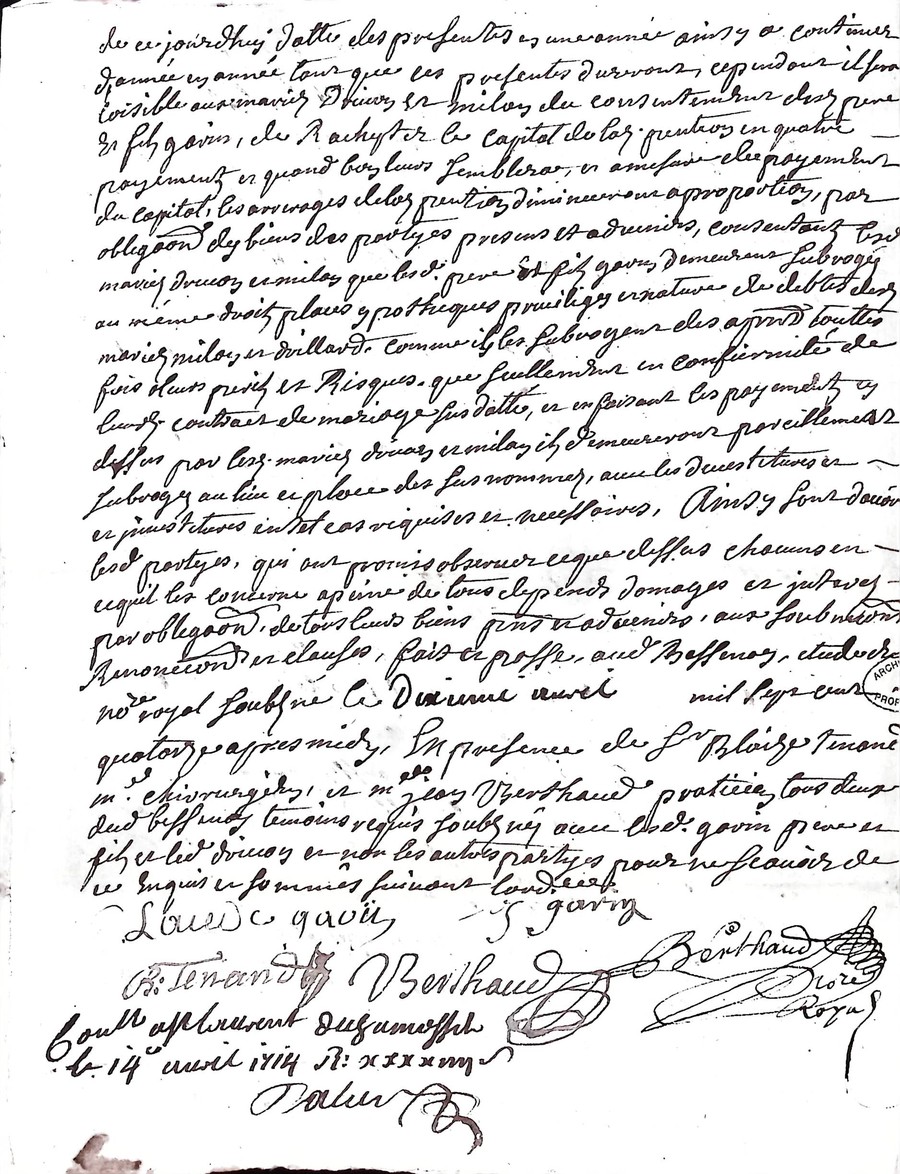 de ce jourdhuy datte des presentes en une année ainsy a continuer
dannée en année tant que ces presentes dureront, cependant il sera
loisible aux mariez Drivon et milan du consentement desd. pere
et filz gavin, de Rachepter le capital de lad. pention en quatre
payementz et quand bon leurs semblera, et amesure des payement
du capital, les arrerages de lad. pention diminueront a proportion, par
obliga͠on des biens des partyes presens et advenirs, consentant lesd
mariez drivon et milan que lesd. pere et filz gavin demeurent subrogés
au même droitz places ypotheques privileges et nature de debtes desd
mariez milan et drillard. comme ilz les subrogent des apnt touttes
fois aleurs perilz et Risques. que seullement en confiermité de
leurd. contract de mariage susdatté, et en faisant les payementz cy
dessus par lesd. mariez drivon et milan ilz demeureront pareillement
subrogez au lieu et place des sus nommez, avec les devestitures et
et jnvestitures en tel cas requises et necessaires, Ainsy sont d'accor
lesd partyes, qui ont promis observer ceque dessus chacuns en
cequil les concerne apeine de tous depends domages et jnterez
par obliga͠on, de tous leurs biens pnts et advenirs, aux soubmi͠ons
Renoncia͠ons et clauses, fait et passé, aud Bessenay, etude du
no.re royal soubzné le Dixieme avril mil sept cent
quatorze apres midy, En presence de Sr Blaize Tenand
m.e chirurgien, et m.e jean Berthaud praticien tous deux
dud bessenay temoins requis soubznés avec lesd. gavin pere et
filz et led drivon et non les autres partyes pour ne scavoir de
ce Enquis et sommés suivant lord.ce
Laude gavin gavin
B: Tenand Berthaud Berthaud
No.re
Royal
Conll a St laurent de chamousset
le 14e avril 1714 R: